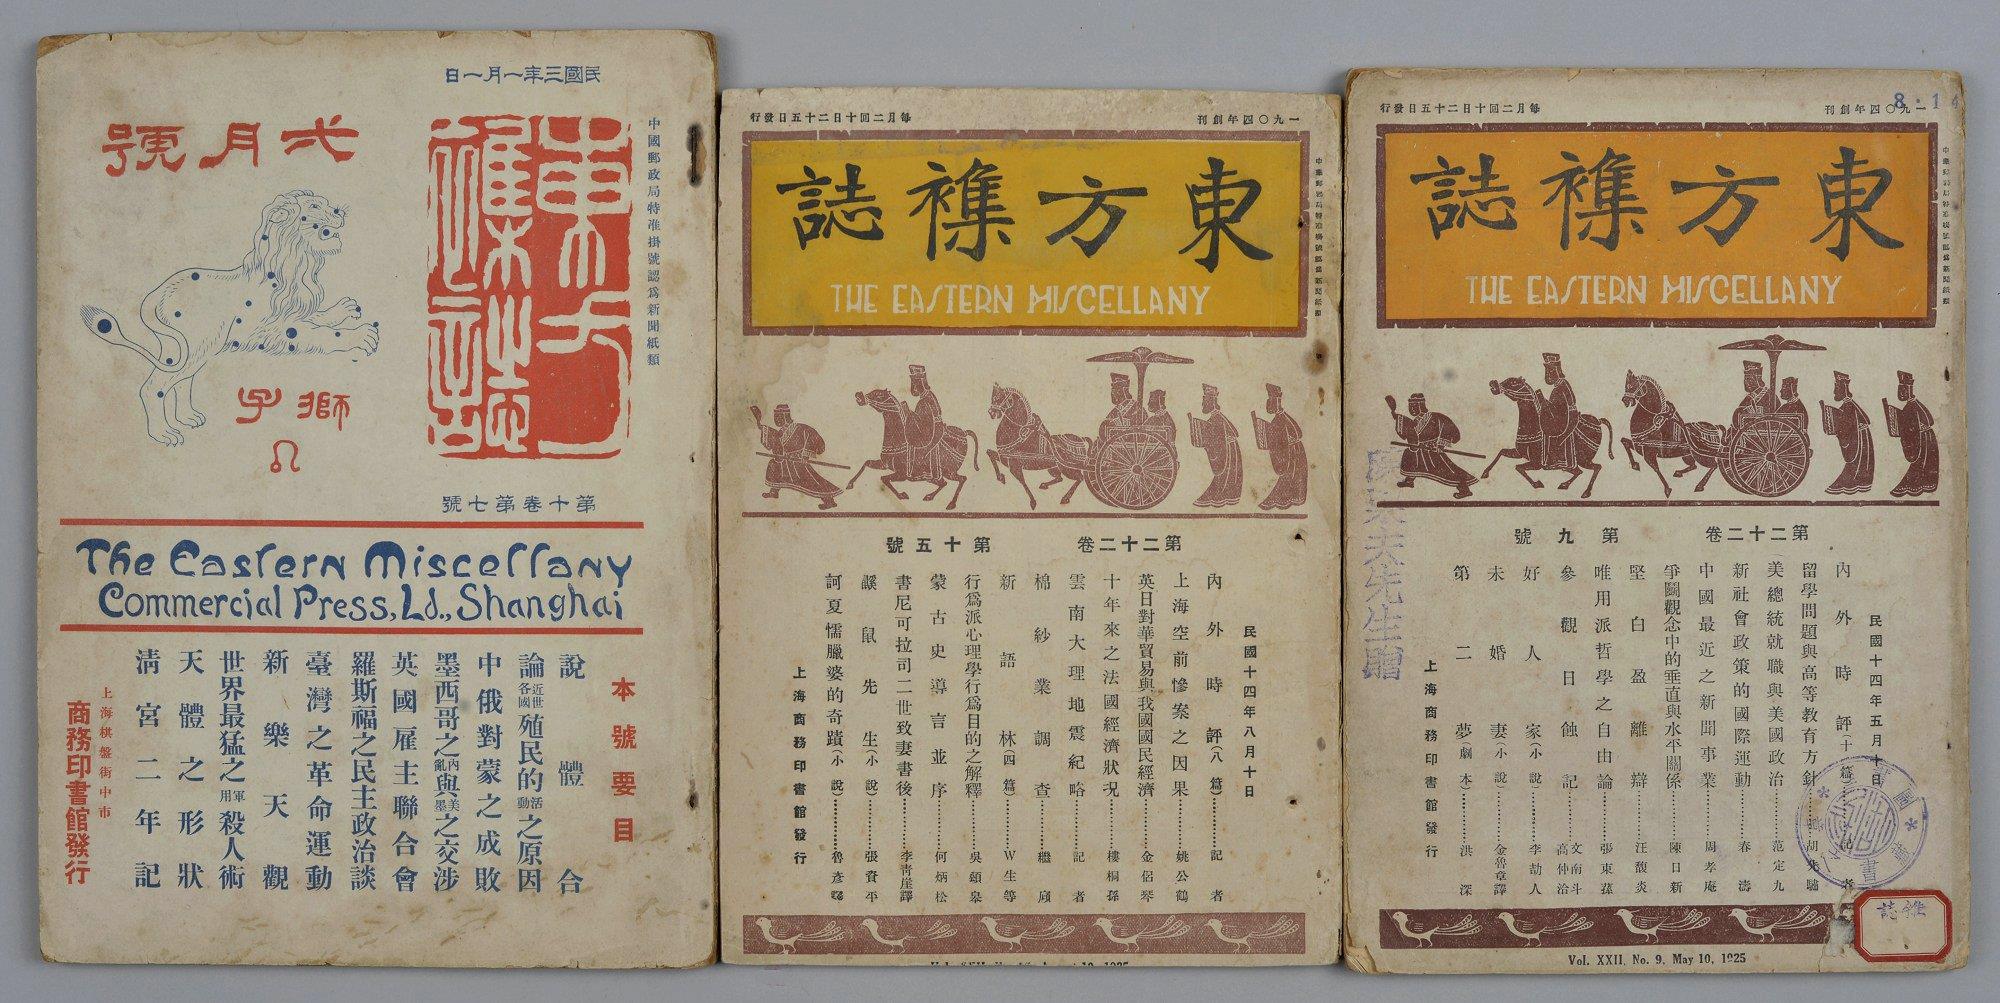 民國三年一月一日
中國郵政局特准掛號認爲新聞紙類
東方
雜誌
弍月號
獅子
第十卷第七號
The Eastern Miscellany
Commercial Press, Ld., Shanghai
本號要目
說體合
論近世各國殖民的活動之原因
中俄對蒙之成敗
墨西哥之內亂與美墨之交涉
英國雇主聯合會
羅斯福之民主政治談
臺灣之革命運動
新樂天觀
世界最猛之軍用殺人術
天體之形狀
淸宮二年記
上海棋盤街中市
商務印書館發行
一九〇四年創刊
每月二回十日二十五日發行
東方雜誌
THE EASTERN MISCELLANY
第二十二卷 第十五號
民國十四年八月十日
內外時評(八篇)………記者
上海空前慘案之因果………姚公鶴
英日對華貿易與我國國民經濟………金侶琴
十年來之法國經濟狀況………樓桐孫
雲南大理地震紀略………記者
棉紗業調查………繼頎
新語林(四篇)………W生等
行爲派心理學行爲目的之解釋………吳頌皋
蒙古史導言並序………何炳松
書尼可拉司二世致妻書後………李靑崖譯
謑鼠先生(小說)………張資平
訶夏懦臘婆的奇蹟(小說)………魯彥譯
上海商務印書館發行
一九〇四年創刊
每月二回十日二十五日發行
東方雜誌
THE EASTERN MISCELLANY
第二十二卷 第九號
民國十四年五月十日
內外時評(十篇)………記者
留學問題與高等教育方針………胡先驌
美總統就職與美國政治………范定九
新社會政策的國際運動………春濤
中國最近之新聞事業………周孝庵
爭鬭觀念中的垂直與水平關係………陳日新
堅白盈離辯………汪馥炎
唯用派哲學之自由論………張東蓀
參觀日蝕記………文南斗 高仲洽
好人家(小說)………李劼人
未婚妻(小說)………金魯章譯
第二夢(劇本)………洪深
上海商務印書館發行
先生贈
雜誌
Vol. XXII, No. 9, May 10, 1925